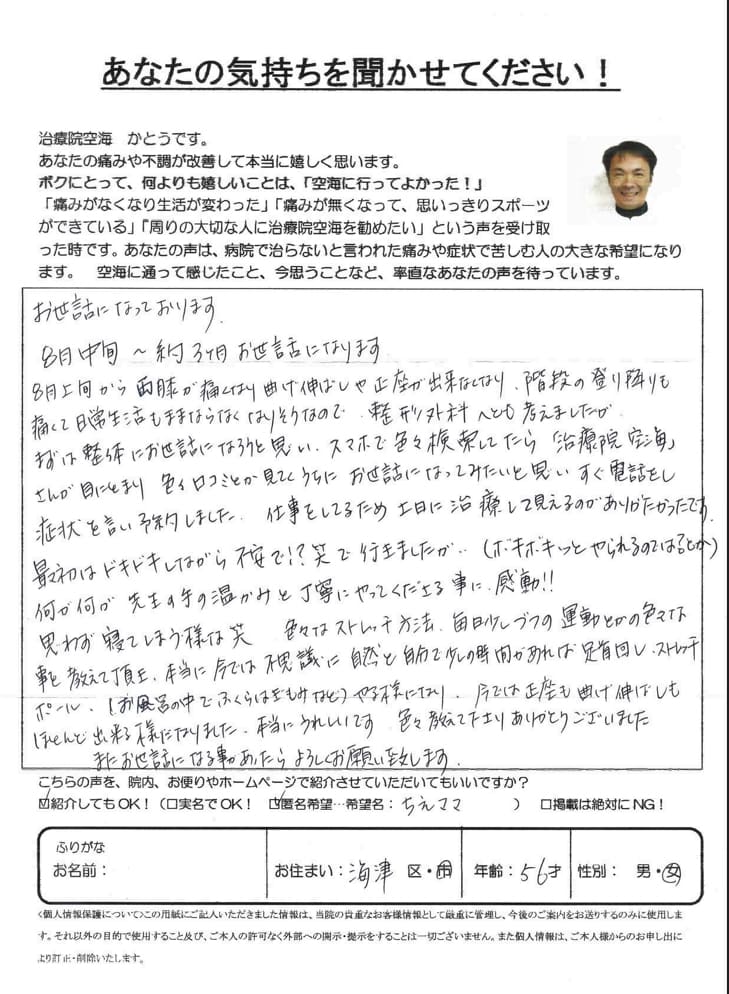 あなたの気持ちを聞かせてください！
治療院空海　かとうです。
あなたの痛みや不調が改善して本当に嬉しく思います。
ボクにとって、何よりも嬉しいことは、「空海に行ってよかった！」
「痛みがなくなり生活が変わった」「痛みが無くなって、思いっきりスポーツ
ができている」『周りの大切な人に治療院空海を勧めたい」という声を受け取
った時です。あなたの声は、病院で治らないと言われた痛みや症状で苦しむ人の大きな希望になり
ます。　空海に通って感じたこと、今思うことなど、率直なあなたの声を待っています。
お世話になっております。
8月中旬 〜 約3ヶ月 お世話になります
8月上旬から 両膝が痛くなり 曲げ伸ばしや 正座が出来なくなり、階段の登り降りも
痛くて 日常生活もままならなくなりそうなので、整形外科へとも考えましたが
まずは 整体にお世話になろうと思い、スマホで色々検索してたら 「治療院 空海」
さんが目にとまり 色々口コミとか見てくうちに お世話になってみたいと思い すぐ電話をし
症状を言い 予約しました。 仕事をしてるため 土日に 治療して見えるのがありがたかったです。
最初は ドキドキしながら 不安で!? 笑 で行きましたが‥ (ボキボキッとやられるのでは?とか)
何が何が 先生の手の温かみと 丁寧にやってくださる事に、感動!!
思わず 寝てしまう様な 笑 色々なストレッチ方法、毎日少しづつの 運動とかの色々な
事を教えて頂き、本当に今では 不思議に 自然と 自分で少しの時間があれば 足首回し、ストレッチ
ポール、(お風呂の中でふくらはぎもみなど) やる様になり、今では正座も曲げ伸ばしも
ほとんど出来る様になりました。本当にうれしいです 色々教えて下さりありがとうございました
またお世話になる事があったら よろしくお願い致します。
こちらの声を、院内、お便りやホームページで紹介させていただいてもいいですか？
☑紹介してもOK！（□実名でOK！　☑匿名希望…希望名：ちえママ　　　）　□掲載は絶対にNG！
ふりがな
お名前：　お住まい：海津 区・市　年齢：56才　性別：　男・女
<個人情報保護について>この用紙にご記入いただきました情報は、当院の貴重なお客様情報として厳重に管理し、今後のご案内をお送りするのみに使用しま
す。それ以外の目的で使用すること及び、ご本人の許可なく外部への開示・提示をすることは一切ございません。また個人情報は、ご本人様からのお申し出に
より訂正・削除いたします。